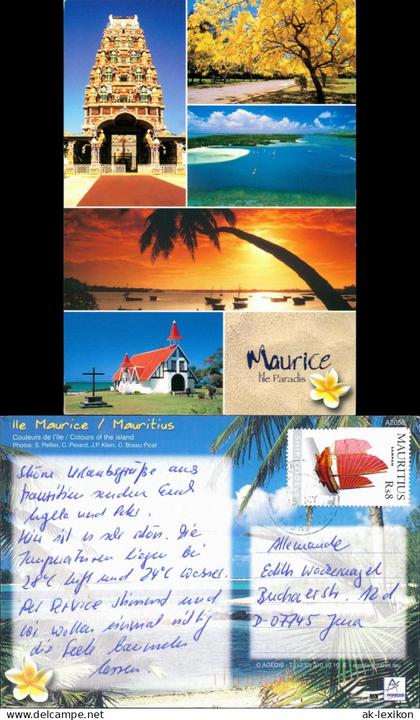 Maurice
l'île Paradis
Ile Maurice / Mauritius
Couleurs de l'île / Colours of the island
Photos: S. Pellier, C. Pavard, J.P. Klein, C. Bossu Picat
A2056
MAURITIUS
Rs8
Schöne Urlaubsgrüße aus
Mauritius senden Euch
Angela und
Hier ist es sehr schön. Die
Temperaturen liegen bei
28°C Luft und 24°C Wasser.
Der Service stimmt und
wir wollen einmal richtig
die Seele baumeln
lassen.
Allemande
Edith Wackernagel
Bucharerstr. 12d
D-07745 Jena
© AGEDIS
ak-lexikon